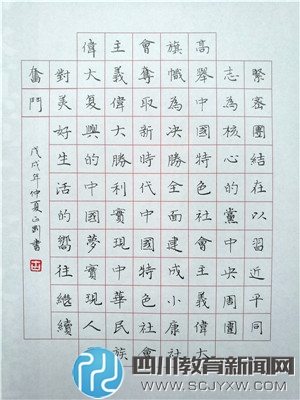 緊密團結在以習近平同
志為核心的黨中央周圍
高舉中國特色社會主義偉大
旗幟為決勝全面建成小康社
會奪取新時代中國特色社會
主義偉大勝利實現中華民族
偉大复興的中國夢實現人
對美好生活的嚮往繼續
奮鬥
戊戌年仲夏書
四川教育新闻网
WWW.SCJYXW.COM